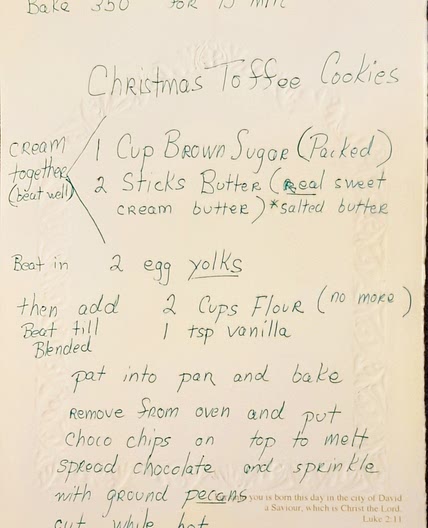 Bake 350 for 15 min
Christmas Toffee Cookies
cream together (beat well)
1 Cup Brown Sugar (Packed)
2 Sticks Butter (real sweet
cream butter) *salted butter
Beat in 2 egg yolks
then add 2 Cups Flour (no more)
Beat till Blended 1 tsp vanilla
pat into pan and bake
Remove from oven and put
choco chips on top to melt
spread chocolate and sprinkle
with ground pecans
you is born this day in the city of David
a Saviour, which is Christ the Lord.
Luke 2:11
cut while hot